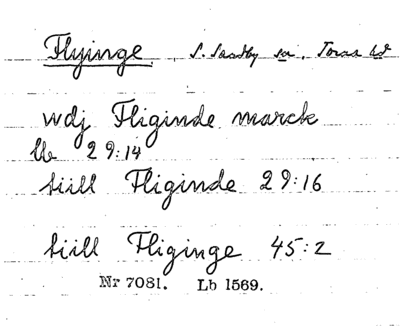 Flyinge S. Sandby sn, Torna hd
wdj Fliginde marck
lb 29:14
tiill Fliginde 29:16
tiill Fliginge 45:2
Nr 7081. Lb 1569.